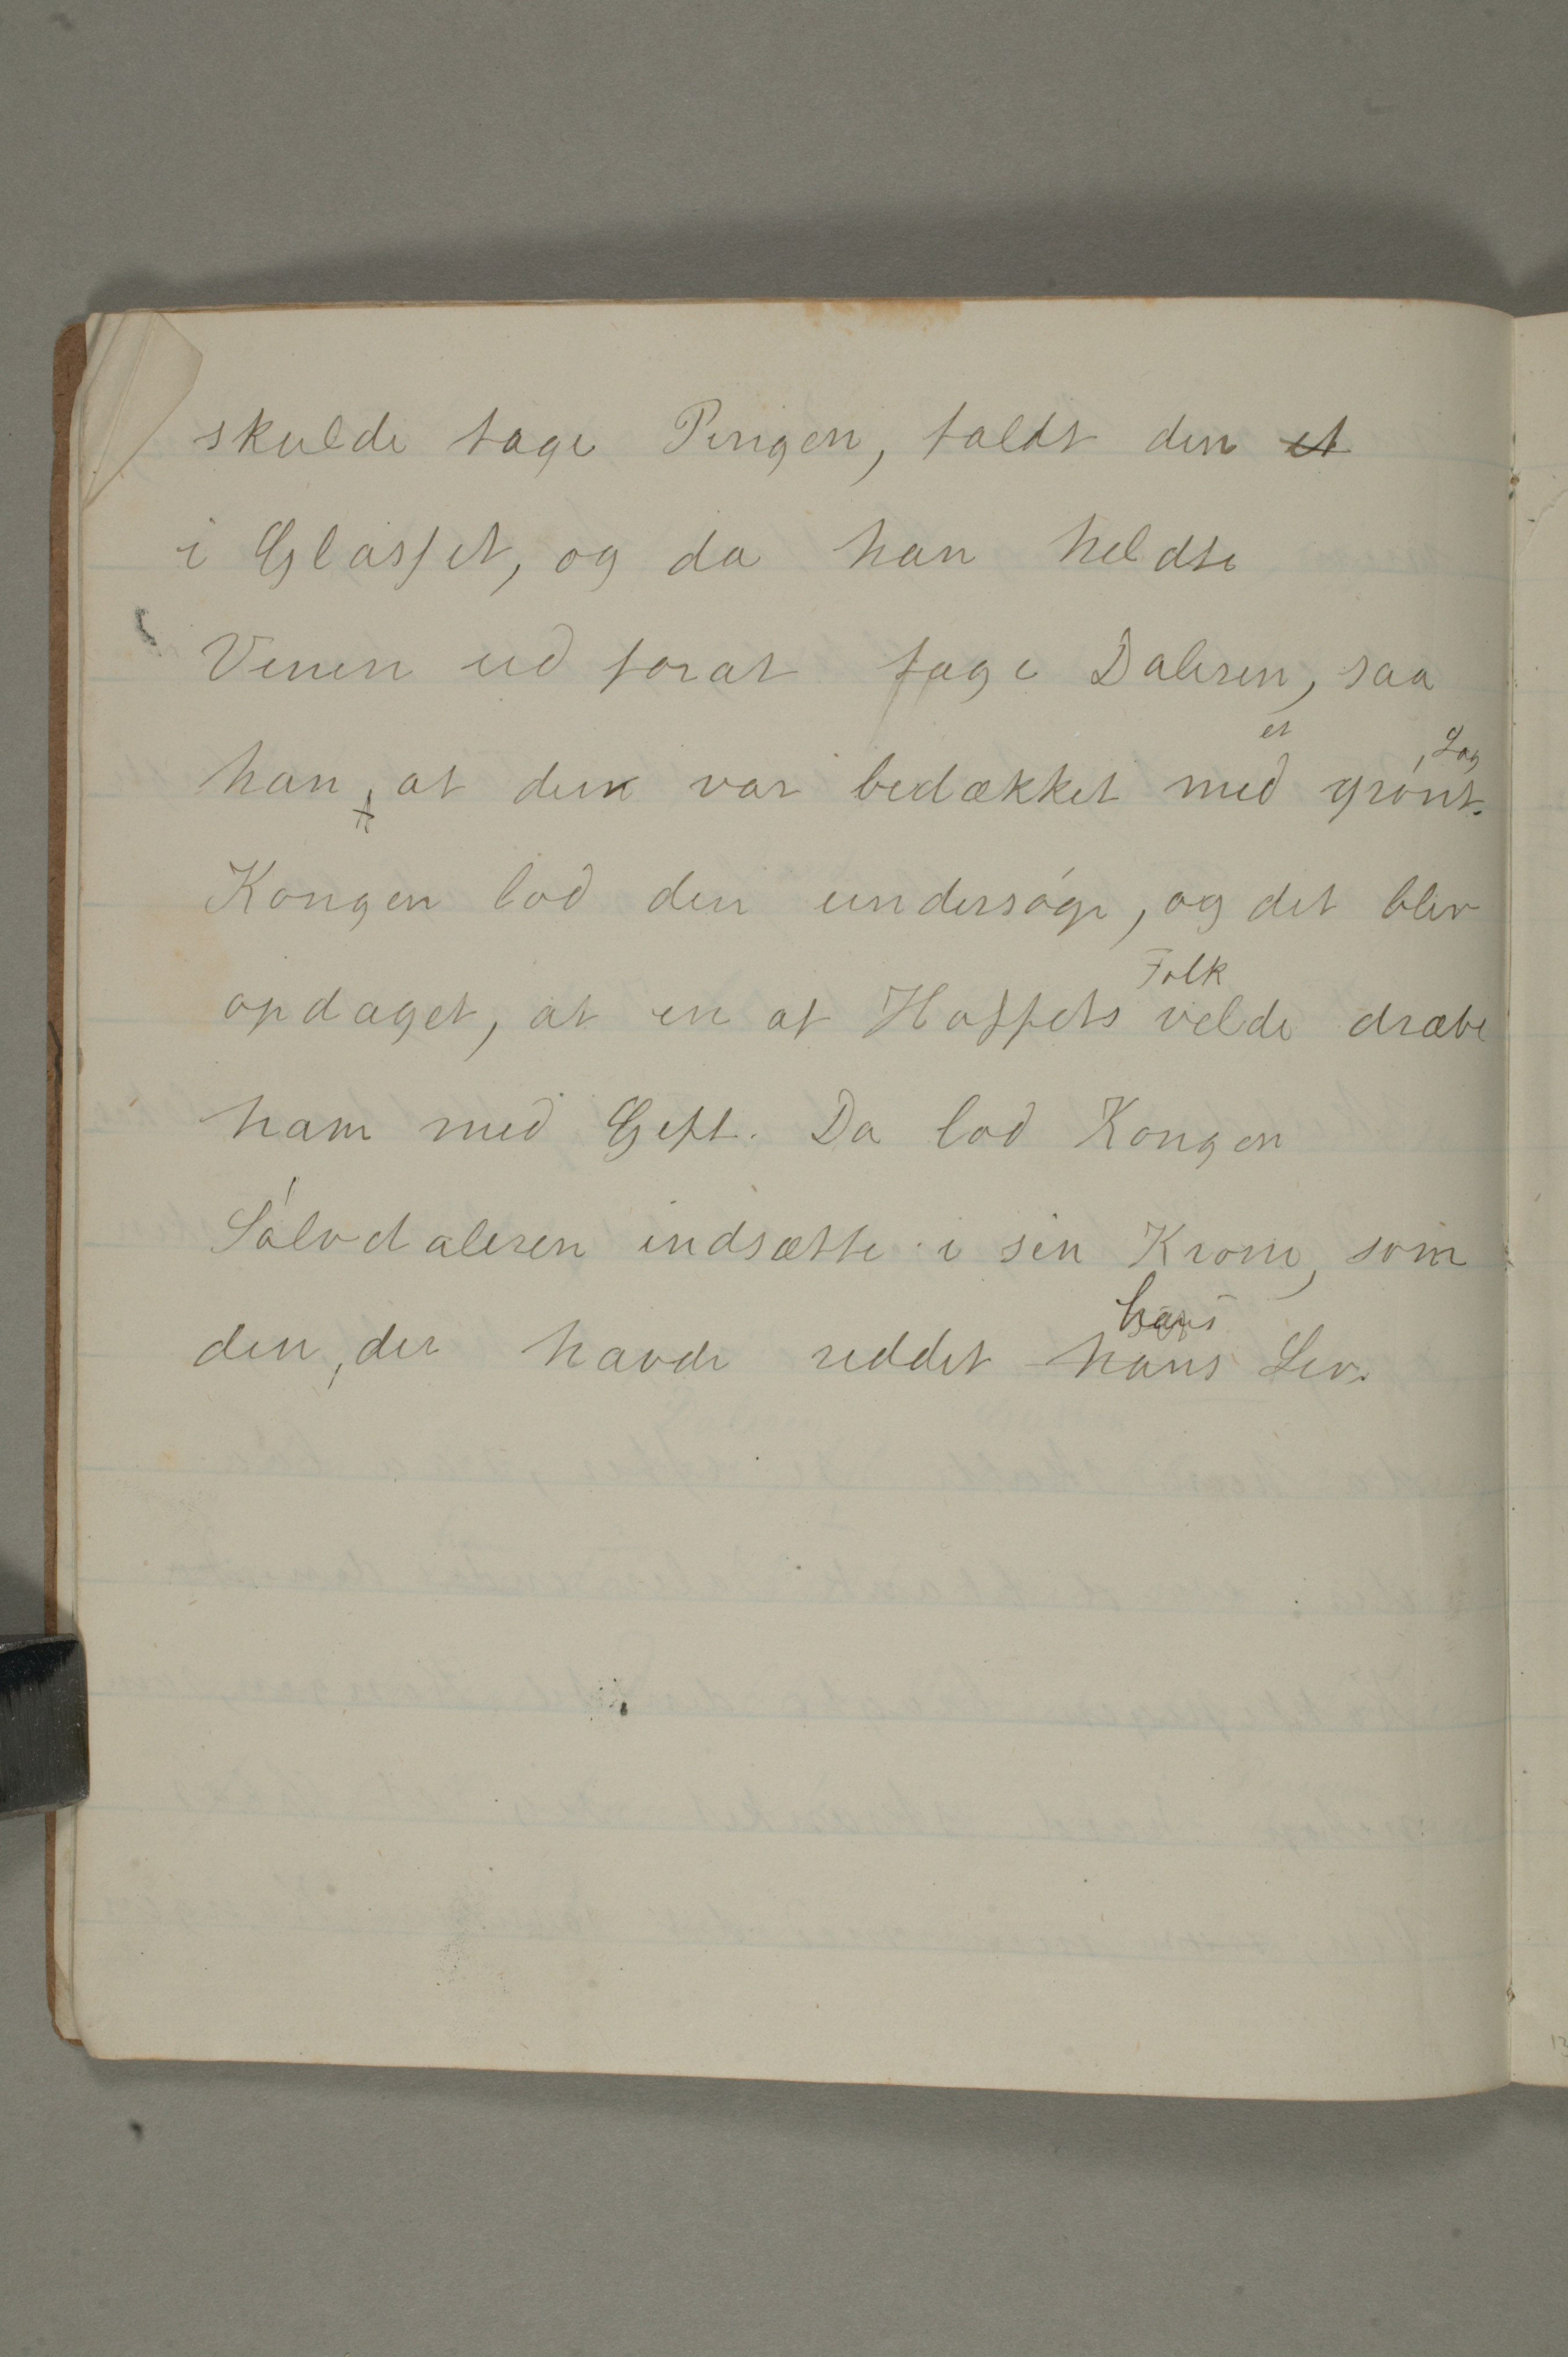 skulde tage Pengen, faldt den et
i Glasset, og da han heldte
Vinen ud forat tage Daleren, saa
han, at den var bedækket med et grønt Lag.
Kongen lod den undersøge, og det blev
opdaget, at en af Hoffets Folk vilde dræbe
ham med Gift. Da lod Kongen
Sølvdaleren indsætte i sin Krone, som
den, der havde reddet hans hans Liv.